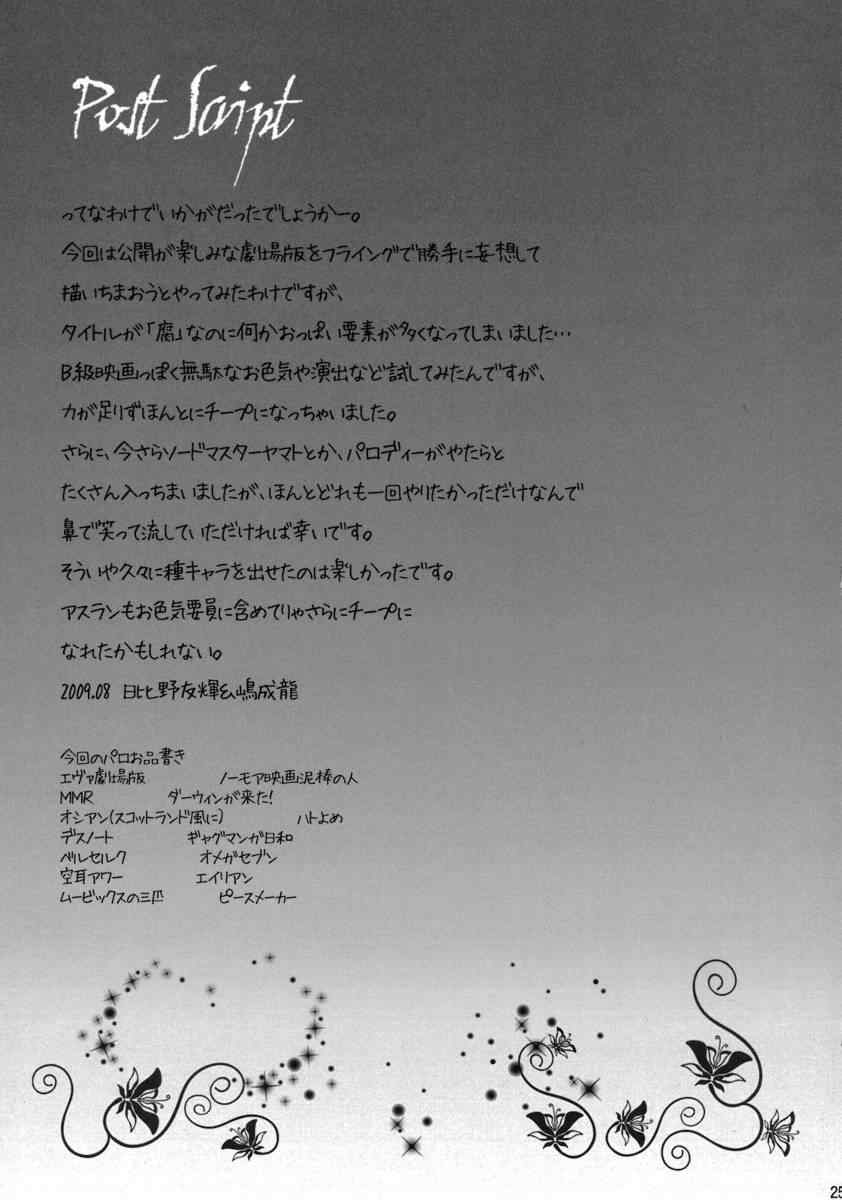 Post Script
ってなわけでいかがだったでしょうかー。
今回は公開が楽しみな劇場版をフライングで勝手に妄想して
描いちまおうとやってみたわけですが、
タイトルが「腐」なのに何かおっぱい要素が多くなってしまいました…
B級映画っぽく無駄なお色気や演出など試してみたんですが、
力が足りずほんとにチープになっちゃいました。
さらに、今さらソードマスターヤマトとか、パロディーがやたらと
たくさん入っちまいましたが、ほんとどれも一回やりたかっただけなんで
鼻で笑って流していただければ幸いです。
そういや久々に種キャラを出せたのは楽しかったです。
アスランもお色気要員に含めてりゃさらにチープに
なれたかもしれない。
2009.08 日比野友輝&嶋成龍
今回のパロお品書き
エヴァ劇場版 ノーモア映画泥棒の人
MMR ダーウィンが来た!
オシアン(スコットランド風に) ハトよめ
デスノート ギャグマンガ日和
ベルセルク オメガセブン
空耳アワー エイリアン
ムービックスの三匹 ピースメーカー
25